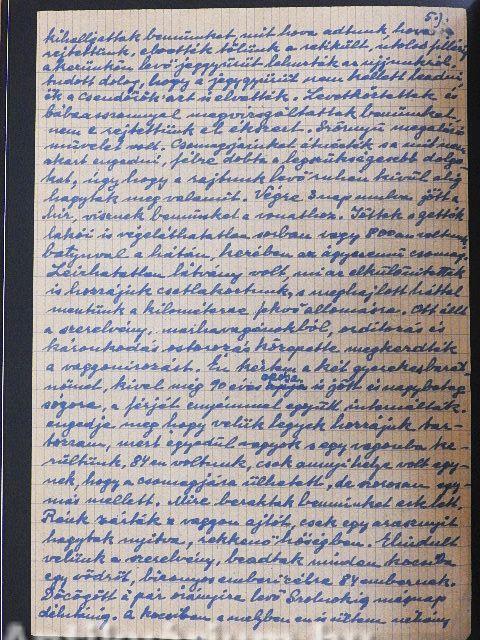 5.)
kihallgattak bennünket, mit hova adtunk, hova
rejtettünk, elvették tőlünk a retikült, utolsó fillérig
a kezünkön levő jeggyűrűt lehúzták az ujjunkról
tudott dolog, hogy a jegygyűrűt nem kellett leadni
ők a csendőrök azt is elvették. Levetkőztettek és
bábaasszonnyal megvizsgáltattak bennünket,
nem e rejtettünk el ékszert. Szörnyű megalázó
művelet volt. Csomagjainkat átnézték s a mit nem
akart engedni, félre dobta a legszükségesebb dolgo-
kat, úgy hogy a rajtunk levő ruhán kívül alig
hagytak meg valamit. Végre 3 nap mulva jött a
hír, visznek bennünket a vonathoz. a gettók
lakói is végeláthatatlan sorban vagy 800an voltunk
batyuval a hátán, kezében az úgynevezett csomag.
Leirhatatlan látvány volt, mi az elkülönítettek
is hozzájuk csatlakoztunk, s meghajlott háttal
mentünk a kilométerre fekvő állomásra. Ott állt
a szerelvény, marhavagonokból, ordítozás és
káromkodás ostorozás közepette megkezdték
a vaggonirozást. Én kértem a két gyerekes barát-
nőmet, kivel még 90 éves is jött és nagybeteg
sógora, a férjét enyémmel együtt internálták.
engedje meg hogy velük legyek hozzájuk tar-
tozzam, mert egyedül vagyok s egy vagonba ke-
rültünk, 84en voltunk, csak annyi hely volt egy-
nek, hogy a csomagjára ülhetett, de szorosan egy-
más mellett. Mire beraktak bennünket este lett.
Ránk zárták a vaggon ajtót, csak egy arasznyit
hagytak nyitva, rekkenő hőségben. Elindult
velünk a szerelvény, beadtak minden kocsiba
egy vödröt, bizonyos emberi célra 84 embernek.
Döcögött a pár órányira levő Szolnokig másnap
délutánig. A kocsiban a melyben én is ültem néhány